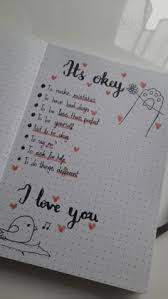 It's okay
To make mistakes
To have bad days
To be less than perfect
To be yourself
Not to be okay
To cry
To ask for help
To do things different
I love you